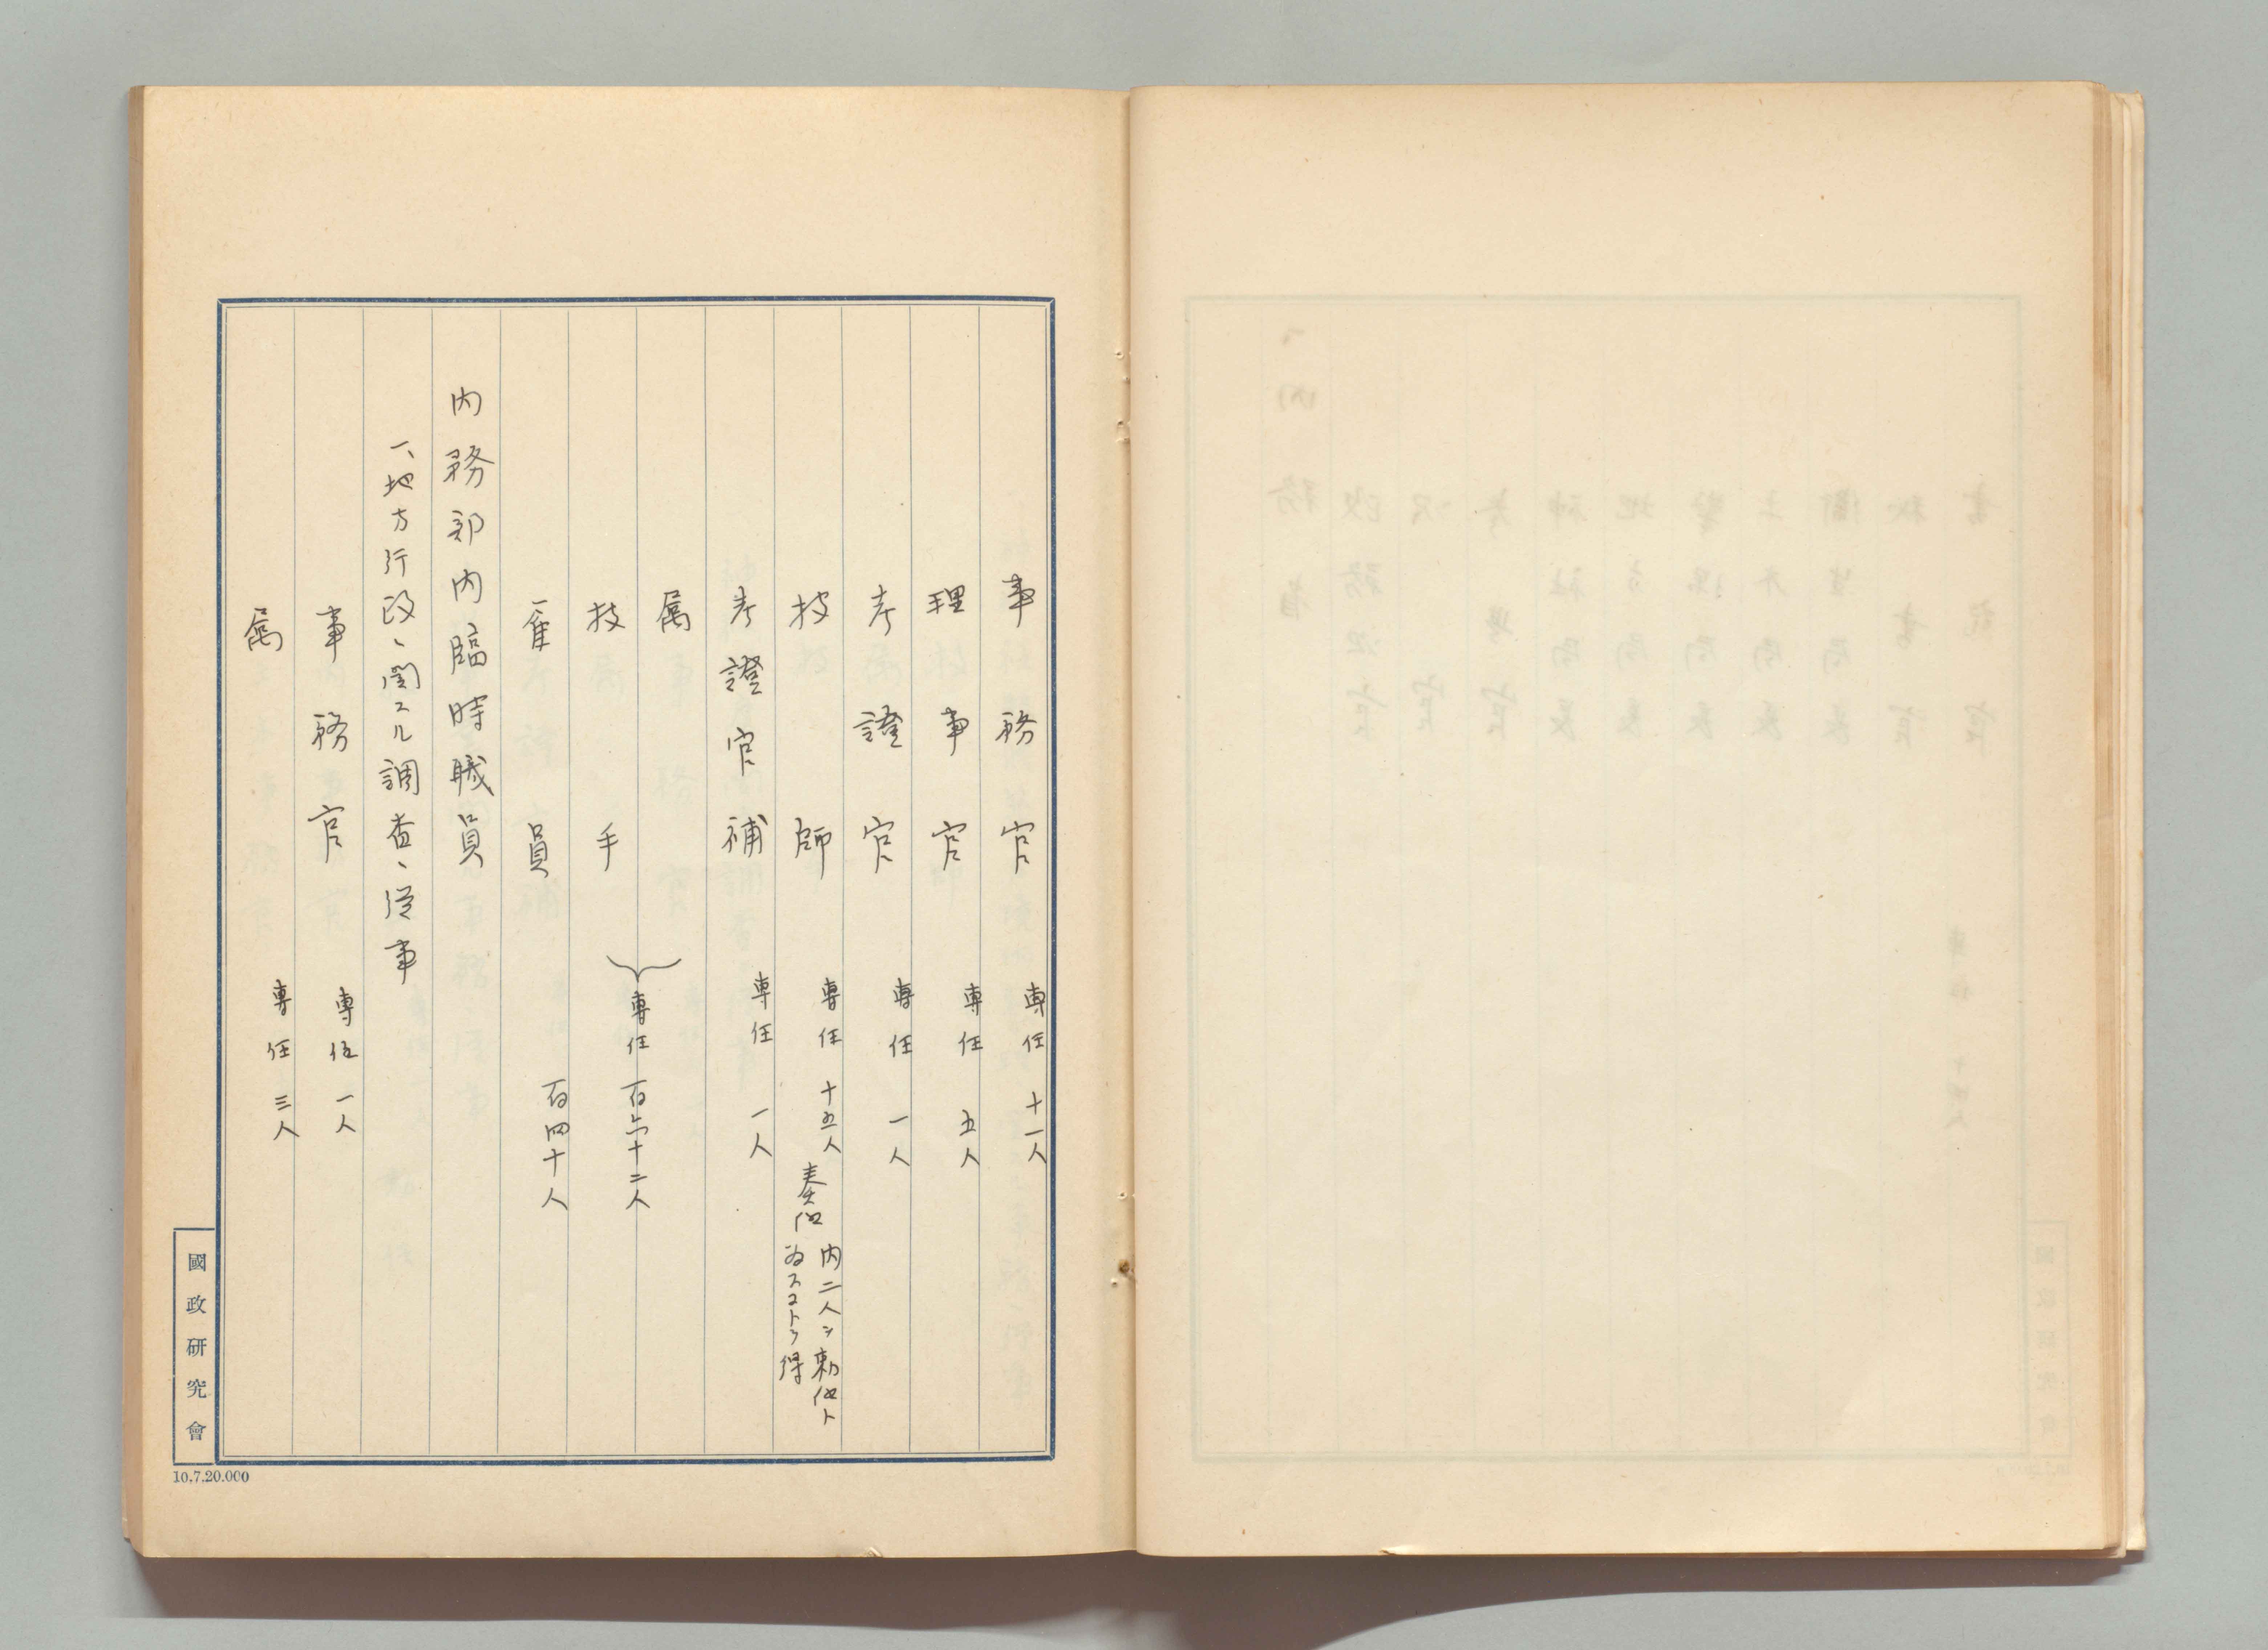 事務官 專任 十一人
理事官 專任 五人
考證官 專任 一人
技師 專任 十五人 奏任 内二人ヲ勅任ト
為スコトヲ得
考證官補 專任 一人
属
技手
專任 百六十二人
雇員 百四十人
内務部内臨時職員
一、地方行政ニ関スル調査ニ従事
事務官 專任 一人
属 專任 三人
國政研究會
10.7.20.000